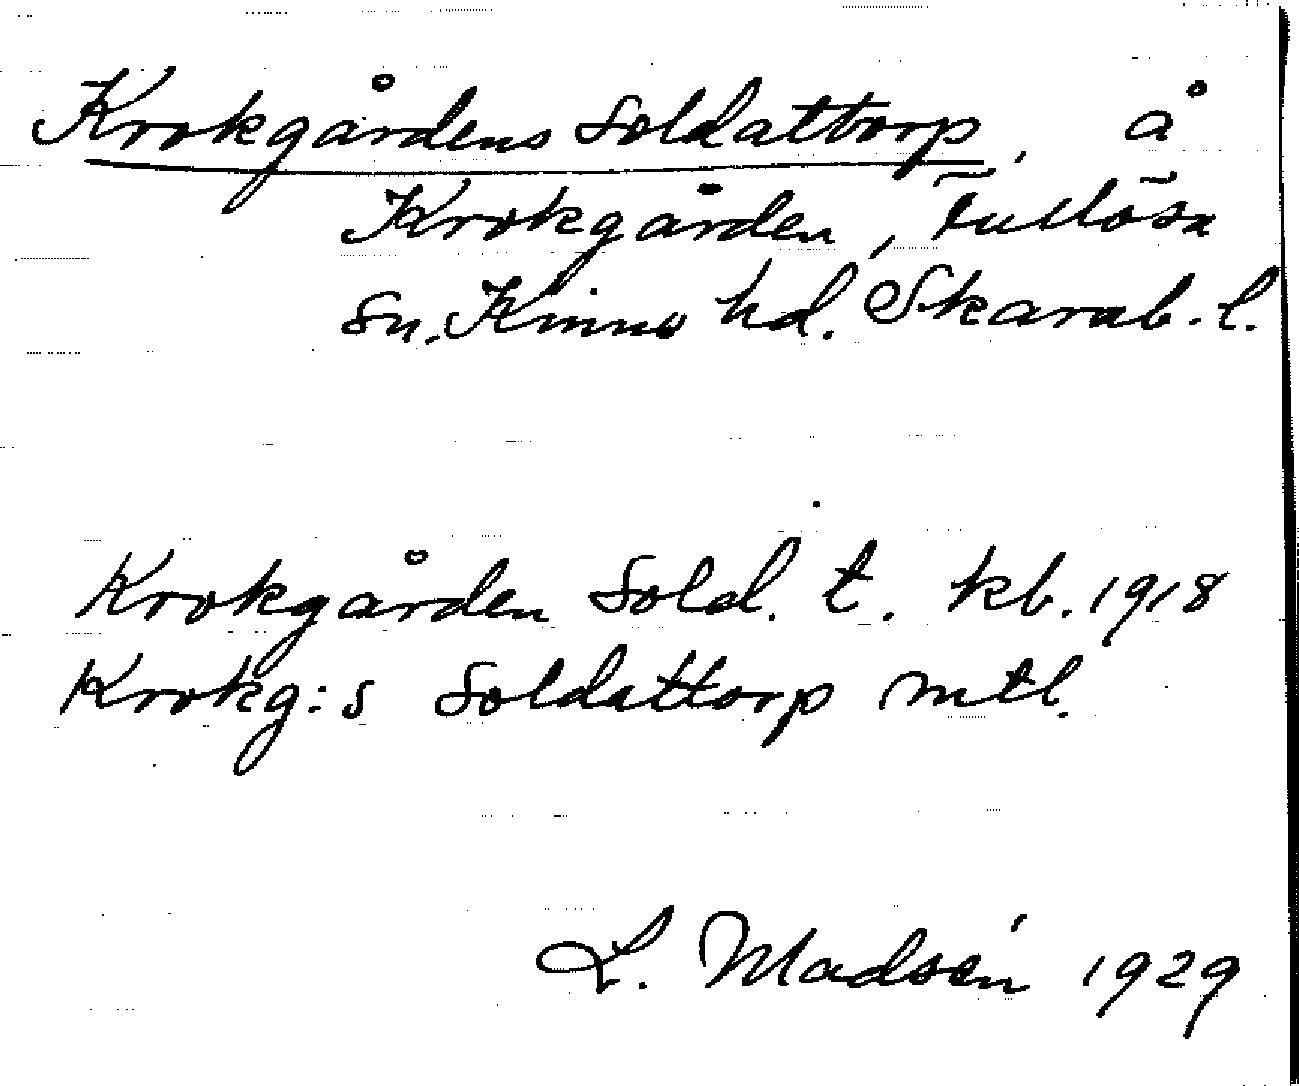 Krokgårdens Soldattorp, å
Krokgården, Fullösa
sn. Kinne hd. Skarab. l.
Krokgården Sold. t. kb. 1918
Krokg:s Soldattorp mtl.
L. Madsén 1929